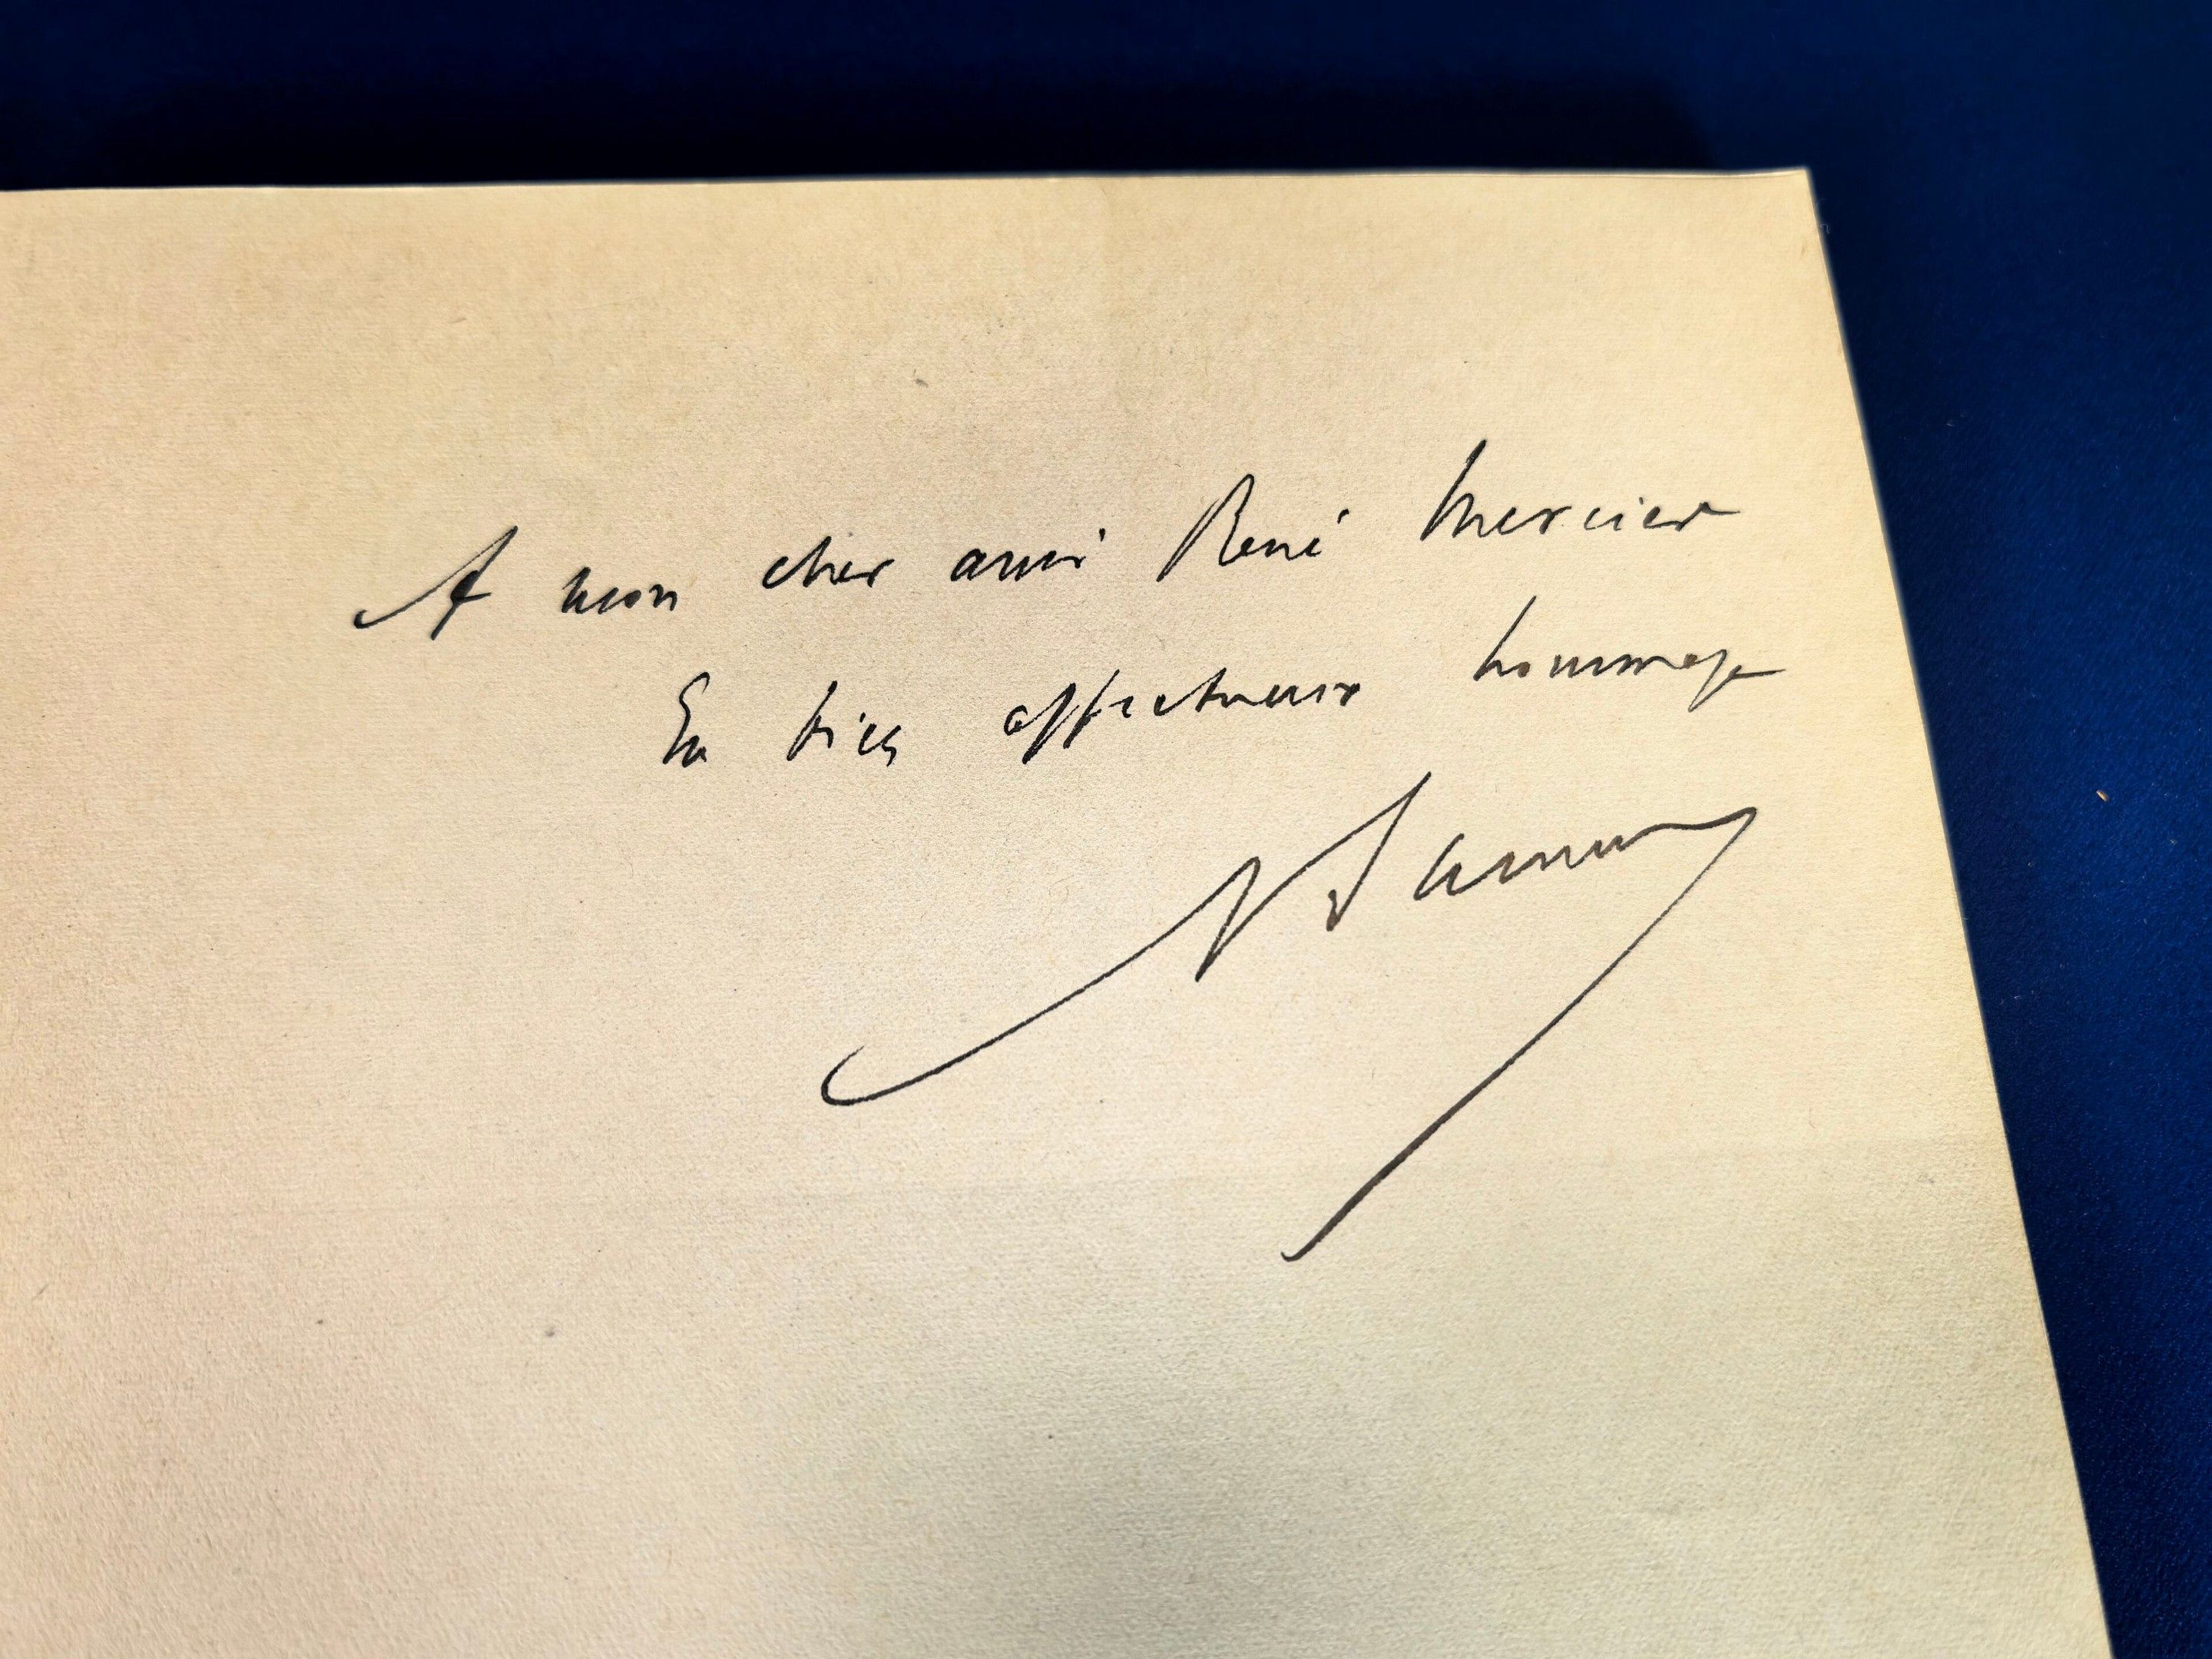 A mon cher ami René Mercier
En très affectueux hommage